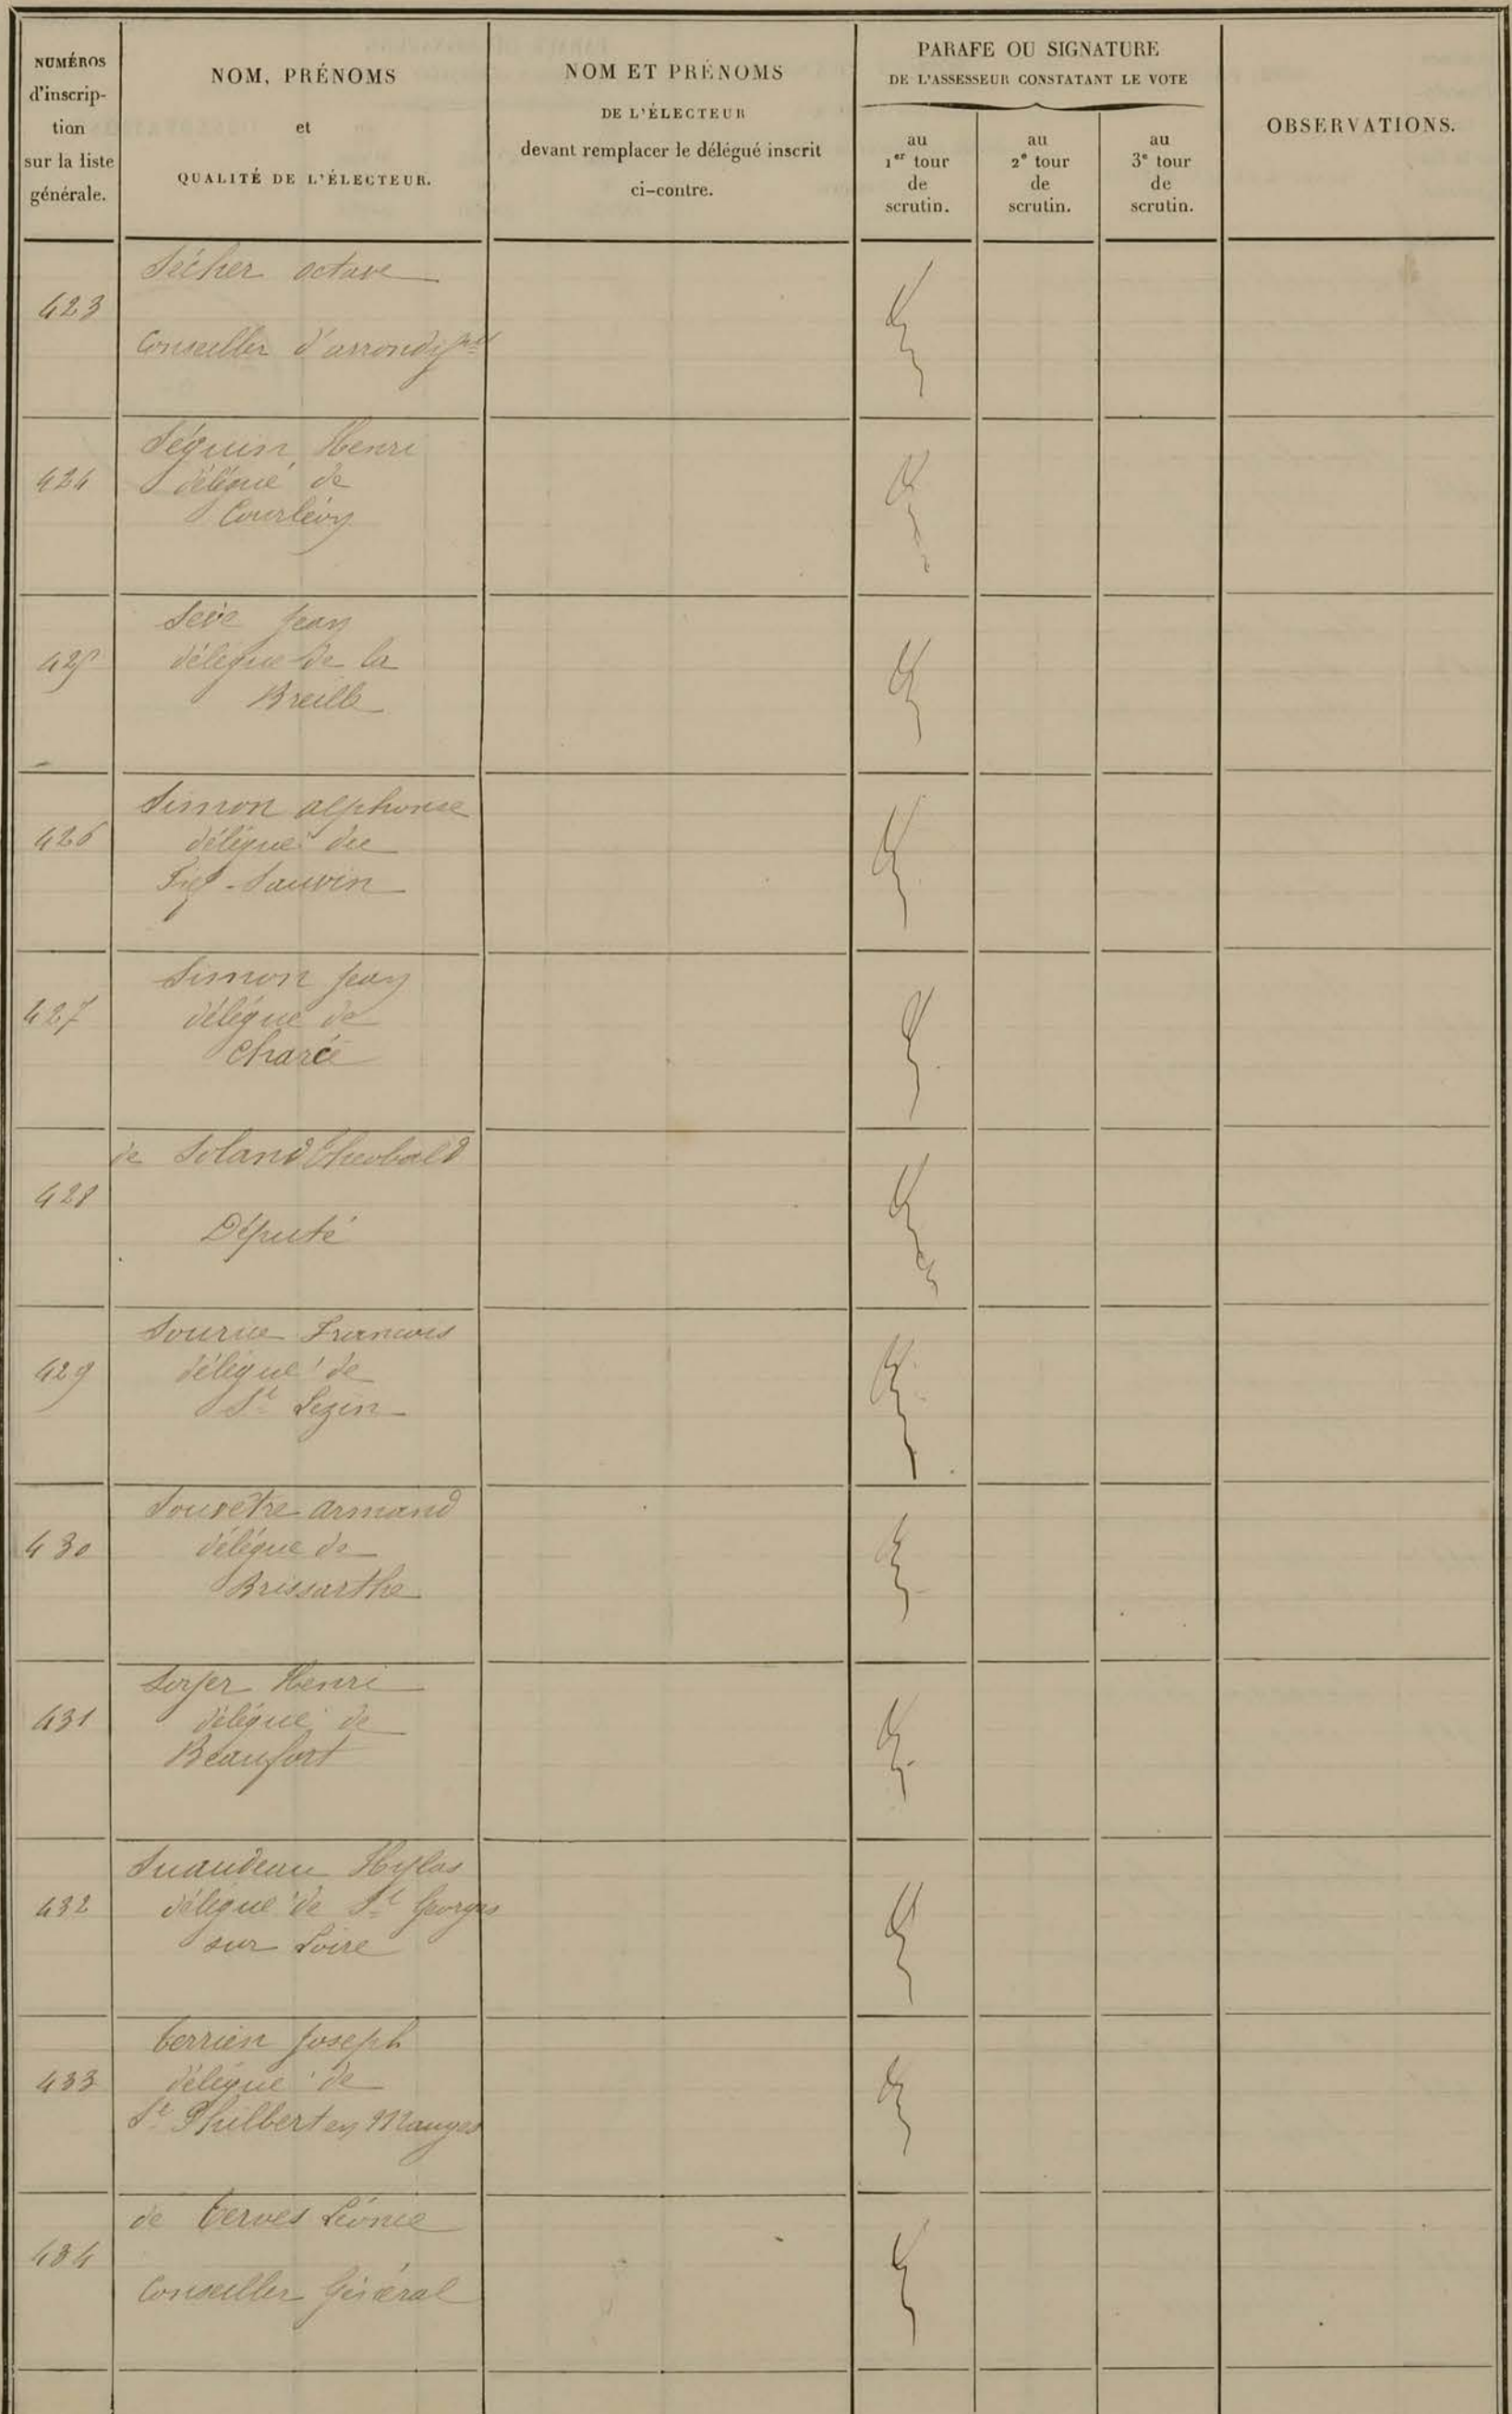 NUMÉROS
d'inscrip-
tion
sur la liste
générale.
NOM, PRÉNOMS
et
QUALITÉ DE L'ÉLECTEUR.
NOM ET PRÉNOMS
DE L'ÉLECTEUR
devant remplacer le délégué inscrit
ci-contre.
PARAFE OU SIGNATURE
DE L'ASSESSEUR CONSTATANT LE VOTE
au
1er tour
de
scrutin.
au
2e tour
de
scrutin.
au
3e tour
de
scrutin.
OBSERVATIONS.
423
Sécher octave
Conseiller d'arrondisst
424
Séguin Henri
délégué de
Courléon
425
Seve Jean
délégué de la
Breille
426
Simon alphonse
délégué du
Fief-Sauvin
427
Simon Jean
délégué de
Charcé
428
de Soland Theobald
Député
429
Sourice Francois
délégué de
St Lezin
430
Souvêtre armand
délégué de
Brissarthe
431
Henri
délégué de
Beaufort
432
Suaudeau Hylas
délégué de St Georges
sur Loire
433
Terrien Joseph
délégué de
St Philbert en Mauges
434
de Terves Léonce
Conseiller Général